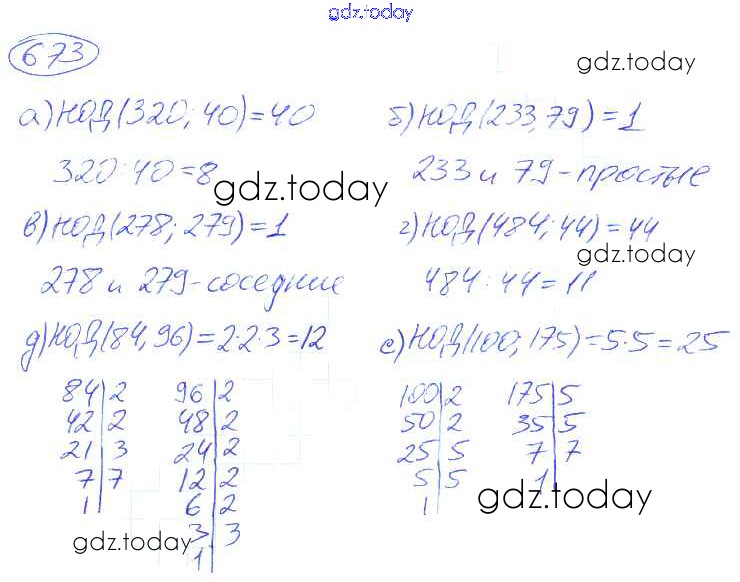 gdz.today
673
gdz.today
а) НОД(320; 40) = 40
б) НОД(233, 79) = 1
320:40 = 8
233 и 79 - простые
gdz.today
в) НОД(278; 279) = 1
г) НОД(484; 44) = 44
gdz.today
278 и 279 - соседние
484 : 44 = 11
д) НОД(84, 96) = 2·2·3 = 12
е) НОД(100; 175) = 5·5 = 25
84|2 96|2 100|2 175|5
42|2 48|2 50|2 35|5
21|3 24|2 25|5 7|7
7|7 12|2 5|5 1|
1| 6|2 1|
gdz.today
3|3
gdz.today
1|